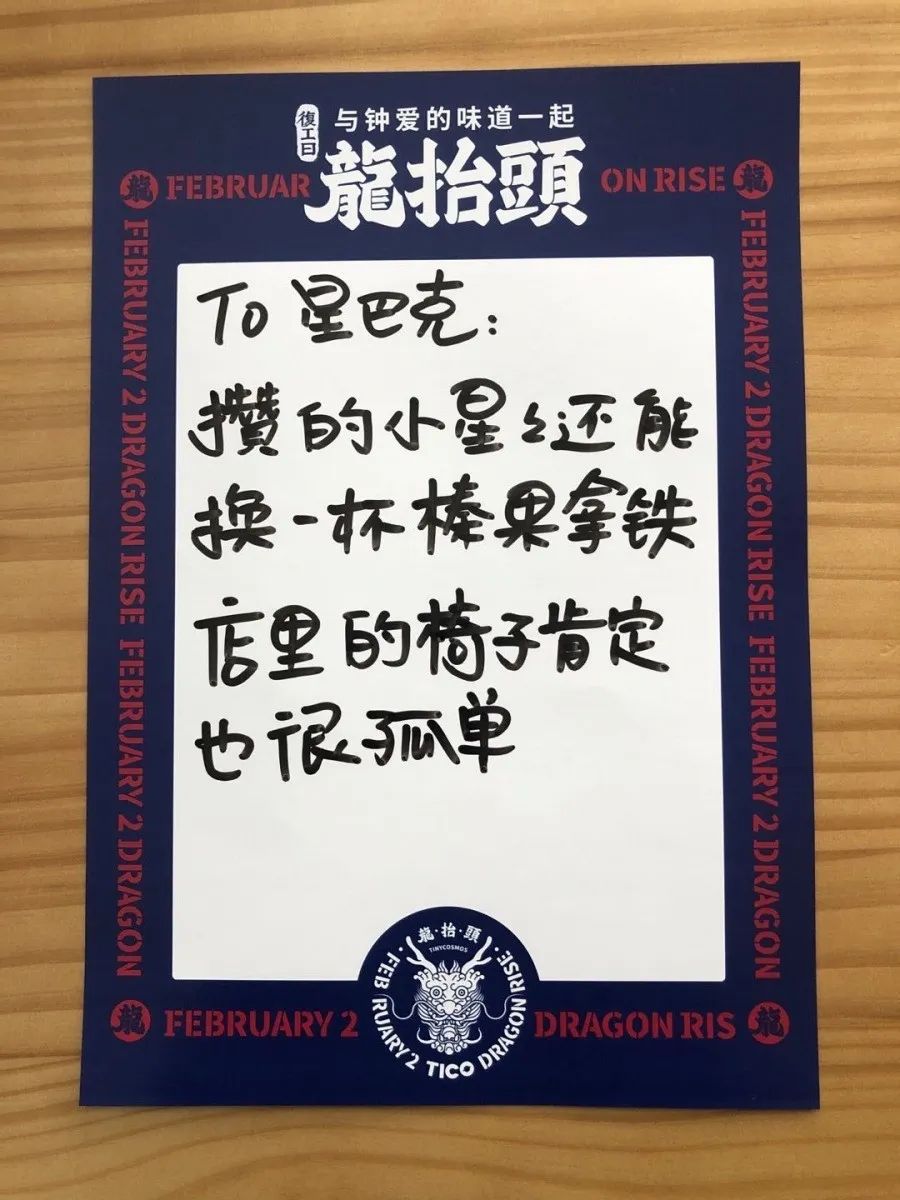 復工日
与钟爱的味道一起
龍抬頭
龍 FEBRUAR
ON RISE 龍
FEBRUARY 2 DRAGON RISE FEBRUARY 2 DRAGON
FEBRUARY 2 DRAGON RISE FEBRUARY 2 DRAGON
To 星巴克:
攒的小星々还能
换一杯榛果拿铁
店里的椅子肯定
也很孤单
龍·抬·頭
TINYCOSMOS
FEBRUARY 2 TICO DRAGON RISE
龍 FEBRUARY 2
DRAGON RIS 龍